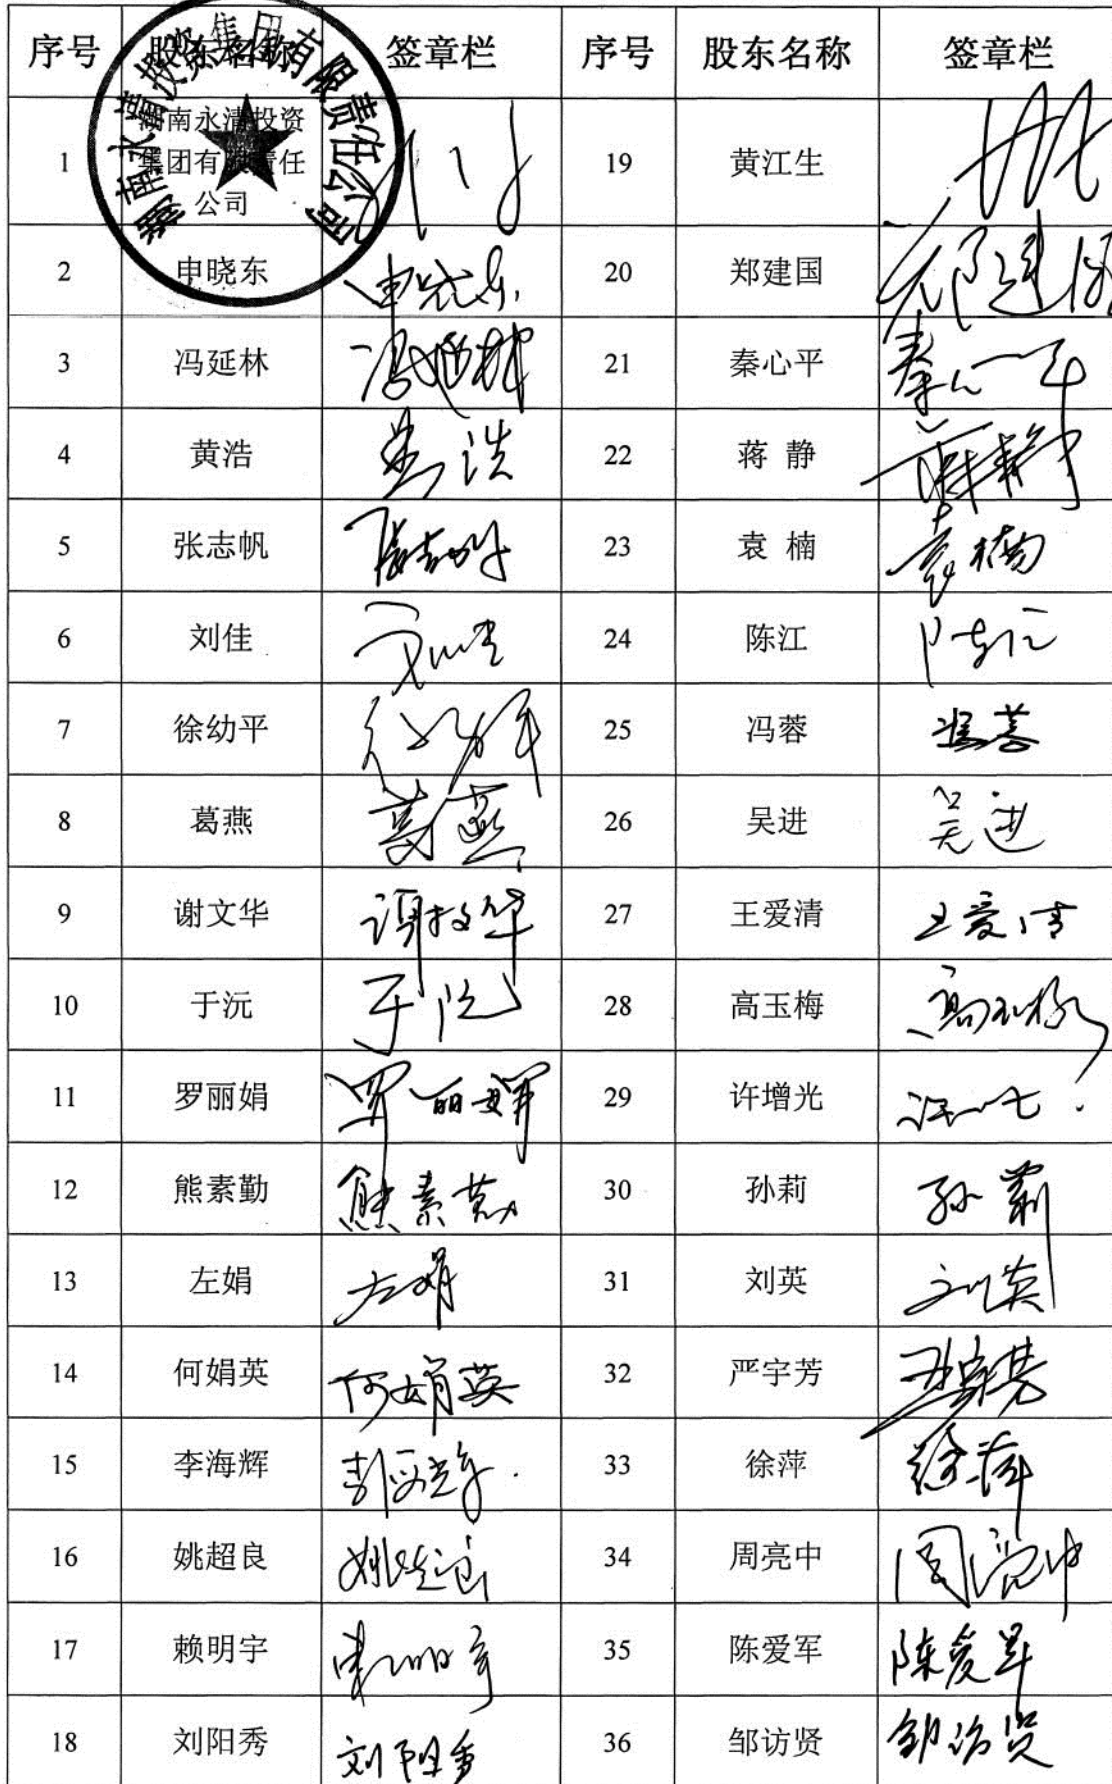 序号 股东名称 签章栏 序号 股东名称 签章栏
湖南永清投资集团有限责任公司
1 湖南永清投资集团有限责任公司 19 黄江生
2 申晓东 申晓东 20 郑建国 郑建国
3 冯延林 冯延林 21 秦心平 秦心平
4 黄浩 黄浩 22 蒋 静 蒋静
5 张志帆 张志帆 23 袁 楠 袁楠
6 刘佳 刘佳 24 陈江 陈江
7 徐幼平 徐幼平 25 冯蓉 冯蓉
8 葛燕 葛燕 26 吴进 吴进
9 谢文华 谢文华 27 王爱清 王爱清
10 于沅 于沅 28 高玉梅 高玉梅
11 罗丽娟 罗丽娟 29 许增光
12 熊素勤 熊素勤 30 孙莉 孙莉
13 左娟 左娟 31 刘英 刘英
14 何娟英 何娟英 32 严宇芳 严宇芳
15 李海辉 33 徐萍 徐萍
16 姚超良 姚超良 34 周亮中 周亮中
17 赖明宇 赖明宇 35 陈爱军 陈爱军
18 刘阳秀 刘阳秀 36 邹访贤 邹访贤